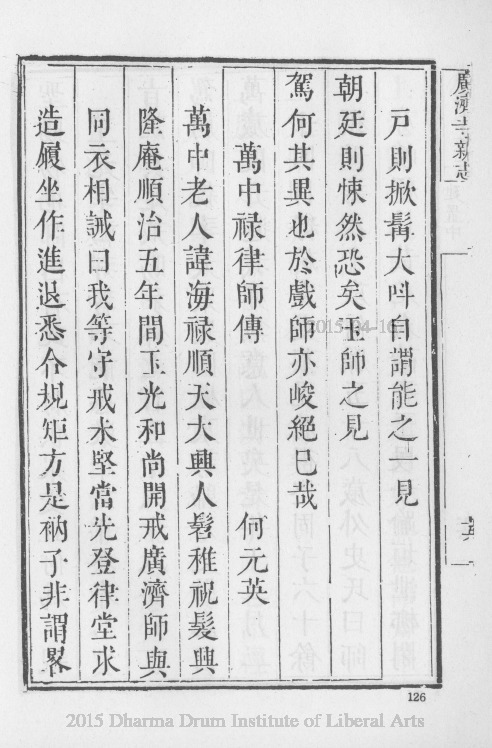 廣濟寺新志
戶則掀髯大呌自謂能之見
朝廷則悚然恐矣玉師之見
駕何其異也於戲師亦峻絕巳哉
萬中祿律師傳 何元英
萬中老人諱海祿順天大興人髫稚祝髮興
隆庵順治五年間玉光和尚開戒廣濟師與
同衣相誡曰我等守戒未堅當先登律堂求
造履坐作進退悉合規矩方是衲子非謂畧
126
2015-04-16
2015 Dharma Drum Institute of Liberal Arts